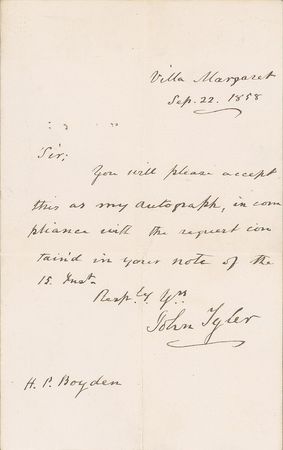 Villa Margaret
Sep. 22. 1858
Sir;
You will please accept
this as my autograph, in com
pliance with the request con
tain'd in your note of the
15. Inst.
Resp.ly Yrs
John Tyler
H. P. Boyden